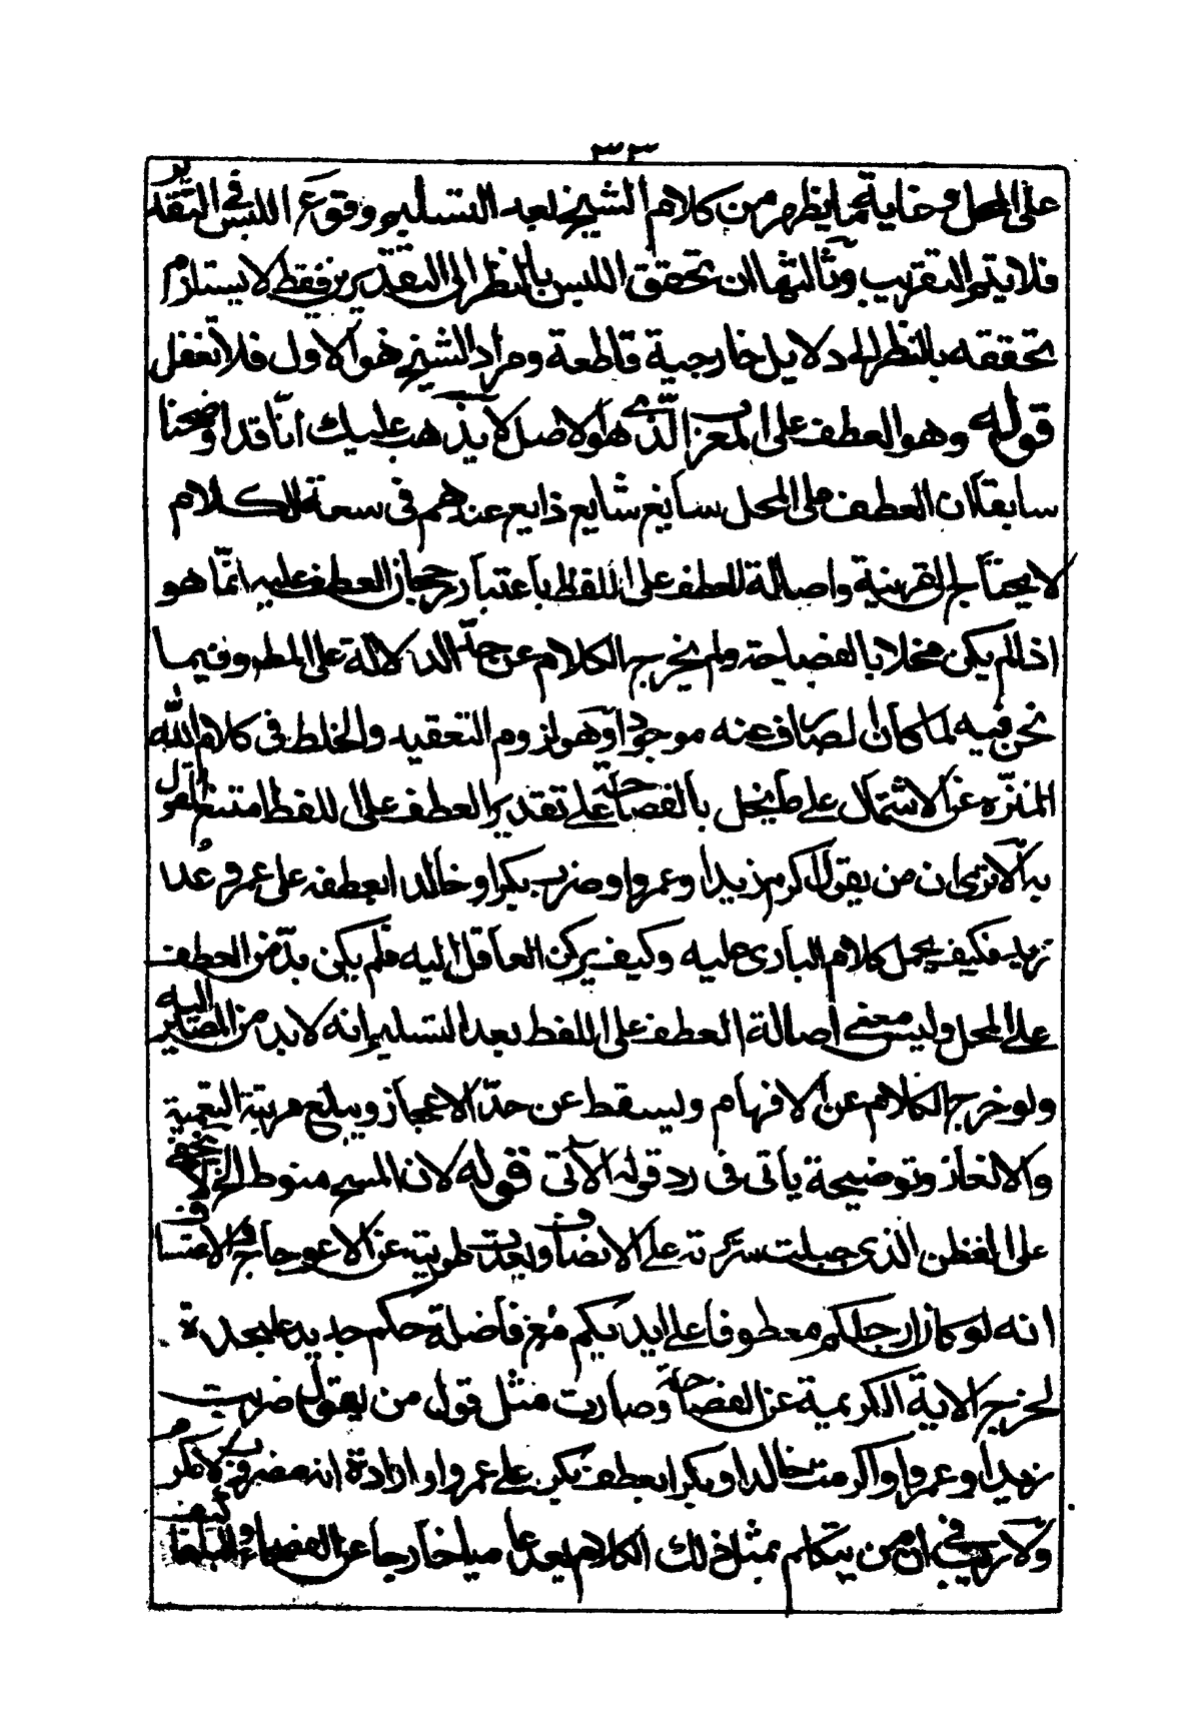 ٣٣
على المحل وغاية ما يظهر من كلام الشيخ بعد التسليم وقوع اللبس في التقدير
فلا يتم التقريب وثالثتها ان تحقق اللبس بالنظر الى التقديرين فقط لا يستلزم
تحققه بالنظر الى دلايل خارجية قاطعة ومراد الشيخ هو الاول فلا تغفل
قوله وهو العطف على المغز الذى هو الاصل لا يذهب عليك انّا قد اوضحنا
سابقا ان العطف على المحل سايغ شايع ذايع عندهم فى سعة الكلام
لا يحتاج الى القرينة واصالة العطف على اللفظ باعتبار رجحان العطف عليه انّما هو
اذا لم يكن مخلا بالفصاحة ولم يخرج الكلام عن جهة الدلالة على المط وفيما
نحن فيه لما كان الصارف عنه موجودا وهو لزوم التعقيد والخلط فى كلام الله
المنزّه عن الاشتمال على ما يخل بالفصاحة على تقدير العطف على اللفظ امتنع القول
به الا ترى ان من يقول اكرم زيدا وعمروا وضرب بكرا وخالدا بعطفه على عمرو عُدّ
فكيف يحمل كلام البارى عليه وكيف يركن العاقل اليه فلم يكن بدّ من العطف
على المحل وليس معنى اصالة العطف على اللفظ بعد التسليم انه لا بد من المصير اليه
ولو خرج الكلام عن الافهام ويسقط عن حدّ الاعجاز ويبلغ مرتبة التعمية
والالغاز وتوضيحه ياتى فى رد قوله الآتى قوله لان المسح منوط الخ لا يخفى
على الفطن الذى جبلت سريرته على الانصاف وبعدت طويته عن الاعوجاج والاعتساف
انه لو كان ارجلكم معطوفا على ايديكم مع فاصلة حكم جديد على حدة
لخرج الاية الكريمة عن الفصاحة وصارت مثل قول من يقول ضربت
زيدا وعمروا واكرمت خالدا وبكرا بعطف بكر على عمرو وارادة انه مضروب لا مكرم
ولا ريب فى ان من يتكلم بمثل ذلك الكلام يعد خارجا عن الفصحاء والبلغاء